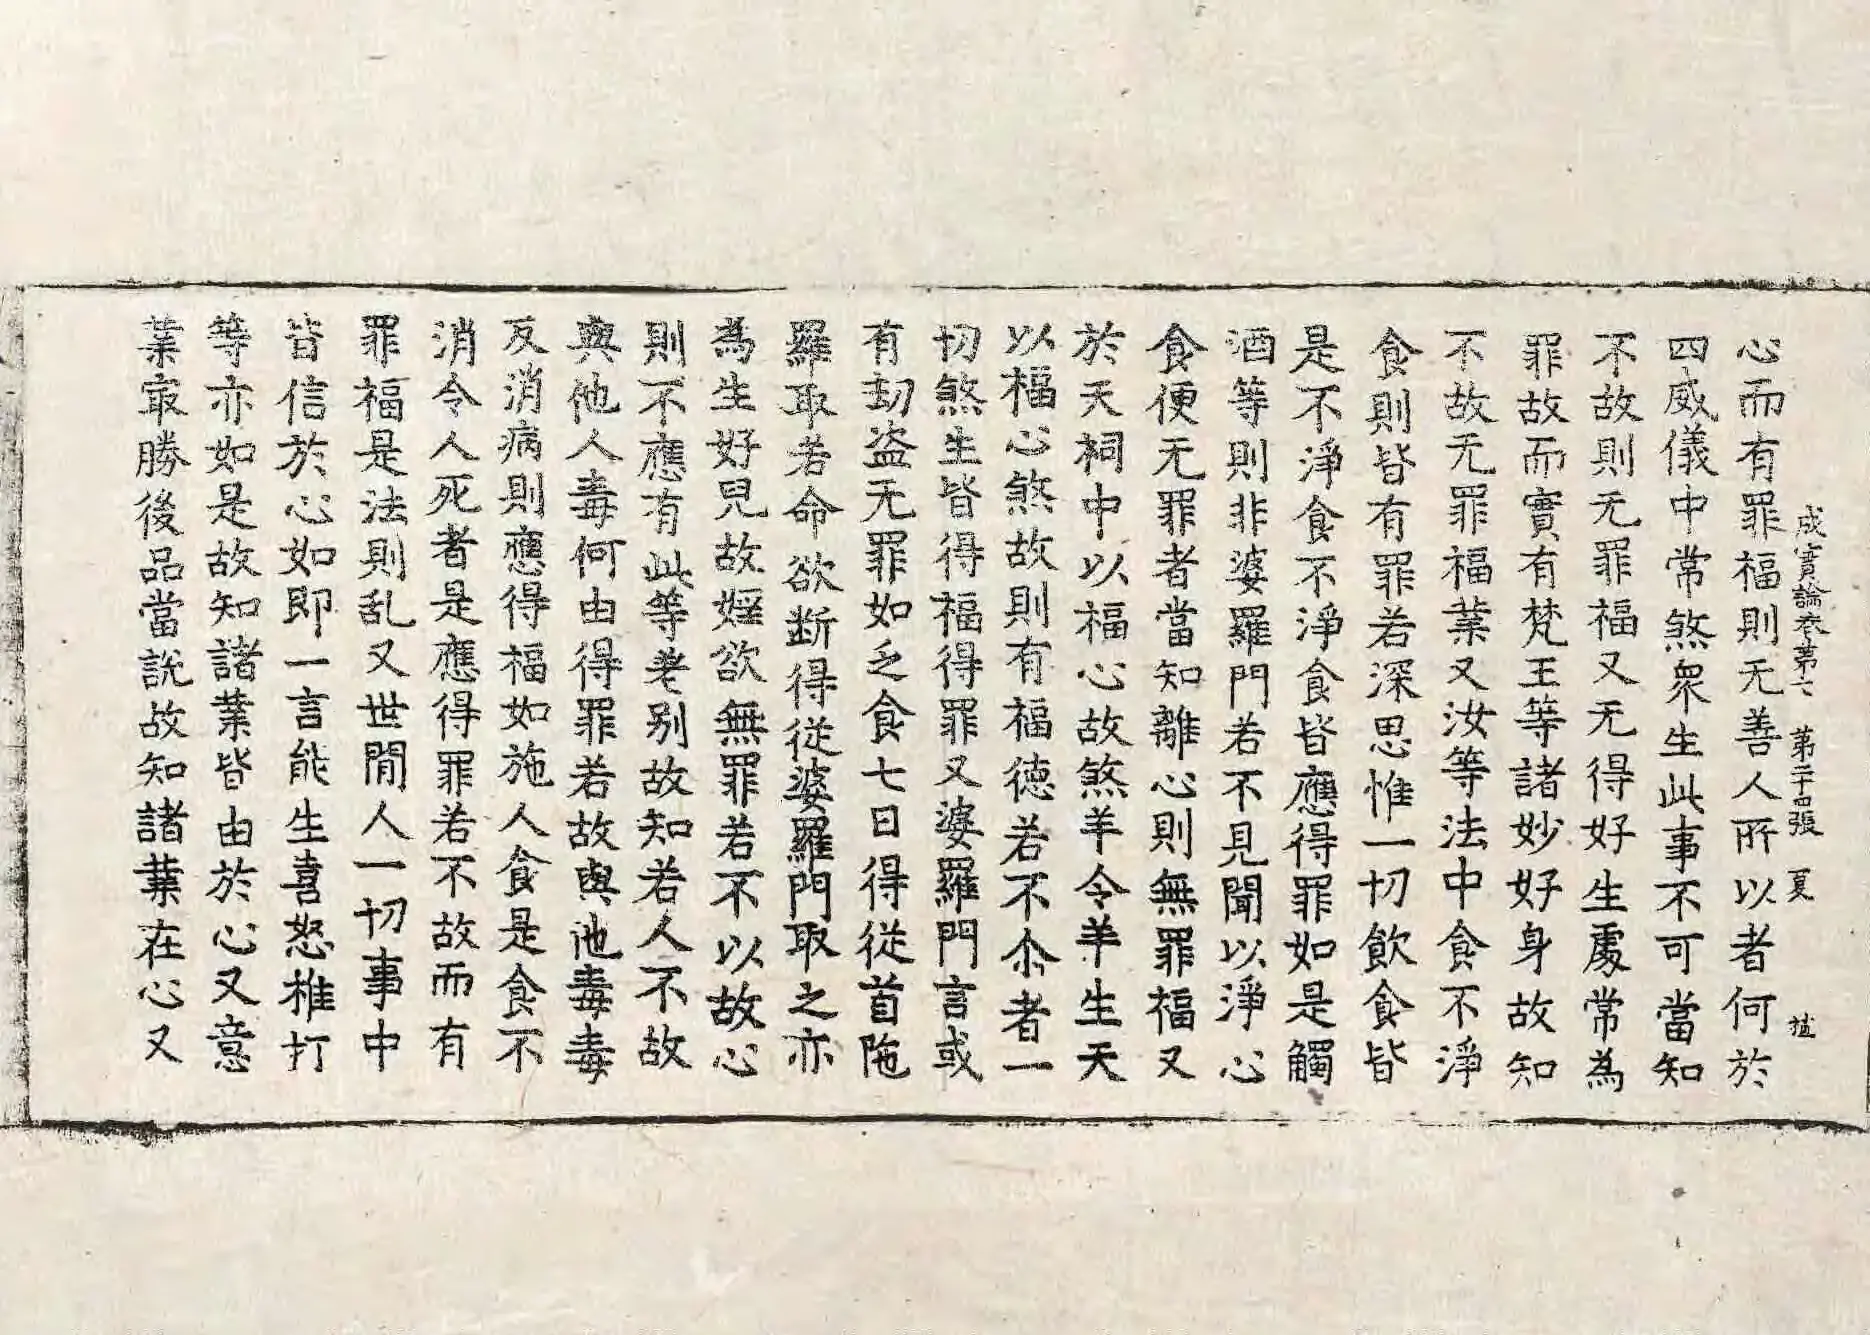 成實論卷第七 第二十四張 夏 植
心而有罪福則无善人所以者何於
四威儀中常煞衆生此事不可當知
不故則无罪福又无得好生處常為
罪故而實有梵王等諸妙好身故知
不故无罪福業又汝等法中食不淨
食則皆有罪若深思惟一切飲食皆
是不淨食不淨食皆應得罪如是觸
酒等則非婆羅門若不見聞以淨心
食便无罪者當知離心則無罪福又
於天祠中以福心故煞羊令羊生天
以福心煞故則有福德若不尒者一
切煞生皆得福得罪又婆羅門言或
有劫盗无罪如乏食七日得從首陁
羅取若命欲断得從婆羅門取之亦
為生好兒故婬欲無罪若不以故心
則不應有此等差别故知若人不故
與他人毒何由得罪若故與他毒毒
反消病則應得福如施人食是食不
消令人死者是應得罪若不故而有
罪福是法則乱又世間人一切事中
皆信於心如即一言能生喜怒椎打
等亦如是故知諸業皆由於心又意
業冣勝後品當說故知諸業在心又